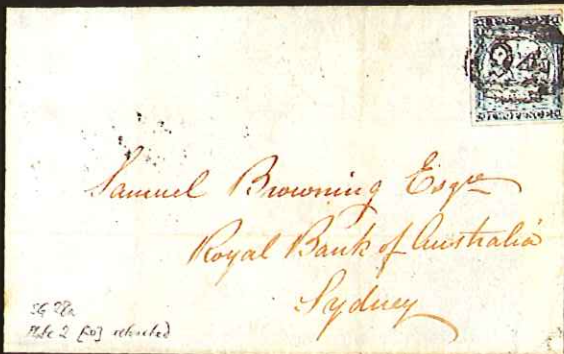 Samuel Browning Esqre
Royal Bank of Australia
Sydney
Plate 2 retouched